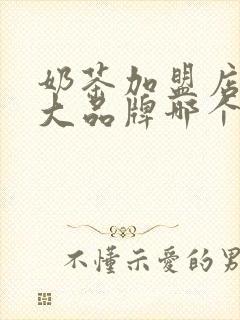 奶茶加盟店
大品牌哪个
不懂示愛的男